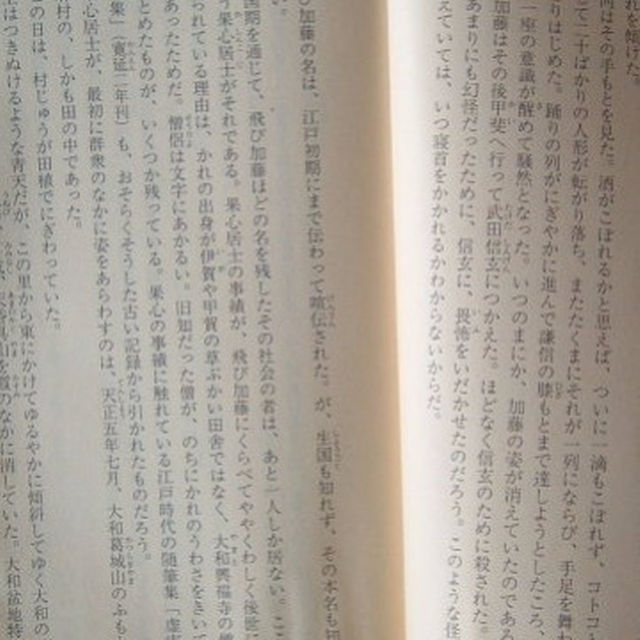 れを傾けた。
尚はその手もとを見た。酒がこぼれるかと思えば、ついに一滴もこぼれず、コトコト
て二十ばかりの人形が転がり落ち、またたくまにそれが一列にならび、手足を舞
りはじめた。踊りの列がにぎやかに進んで謙信の膝もとまで達しようとしたころ、
一座の意識が醒めて騒然となった。いつのまにか、加藤の姿が消えていたのである
加藤はその後甲斐へ行って武田信玄につかえた。ほどなく信玄のために殺された。
あまりにも幻怪だったために、信玄に、畏怖をいだかせたのだろう。このような怪
えていては、いつ寝首をかかれるかわからないからだ。
び加藤の名は、江戸初期にまで伝わって喧伝された。が、生国も知れず、その本名も知
い。
国期を通じて、飛び加藤ほどの名を残したその社会の者は、あと一人しか居ない。ここ
果心居士がそれである。果心居士の事績が、飛び加藤にくらべてややくわしく後世に
られている理由は、かれの出身が伊賀や甲賀の草ぶかい田舎ではなく、大和興福寺の僧
あったためだ。僧侶は文字にあかるい。旧知だった僧が、のちにかれのうわさをきいて
とめたものが、いくつか残っている。果心の事績に触れている江戸時代の随筆集「虚
集」（寛延二年刊）も、おそらくそうした古い記録から引かれたものだろう。
心居士が、最初に群衆のなかに姿をあらわすのは、天正五年七月、大和葛城山のふも
村の、しかも田の中であった。
の日は、村じゅうが田植でにぎわっていた。
はつきぬけるような青天だが、この里から東にかけてゆるやかに傾斜してゆく大和の
のなかに消していた。大和盆地特